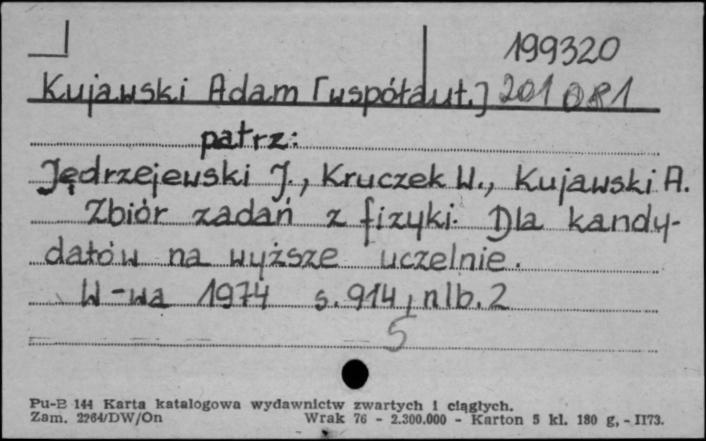 199320
Kujawski Adam [współaut.] 201081
patrz:
Jędrzejewski J., Kruczek W., Kujawski A.
Zbiór zadań z fizyki. Dla kandy-
datów na wyższe uczelnie.
W-wa 1974 s. 914, nlb. 2
5
Pu-B 144 Karta katalogowa wydawnictw zwartych i ciągłych.
Zam. 2264/DW/On Wrak 76 - 2.300.000 - Karton 5 kl. 180 g, - II73.